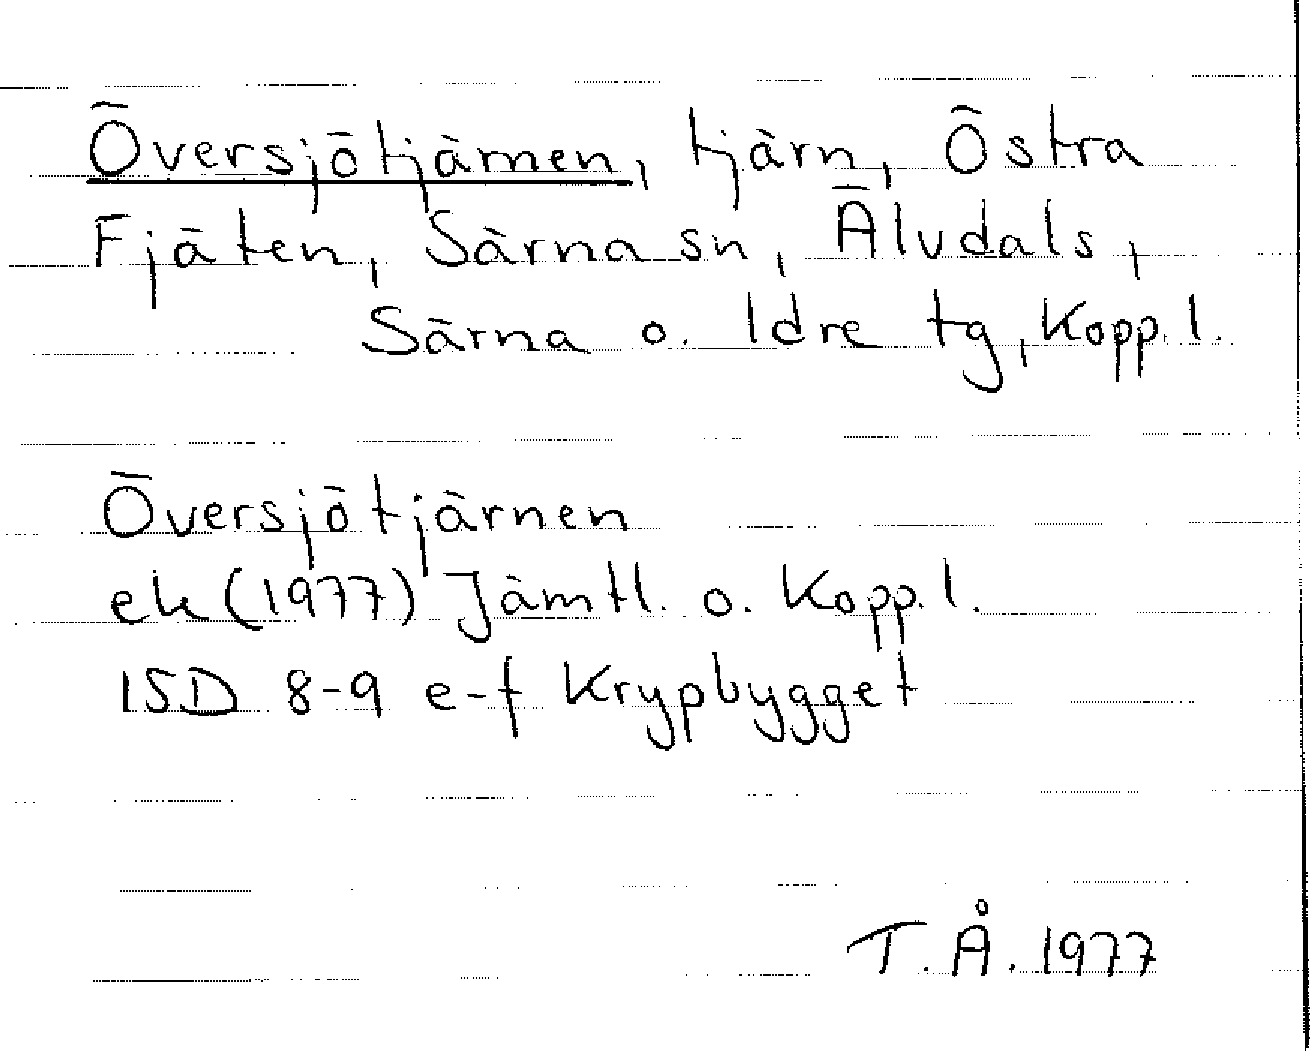 Översjötjärnen, tjärn, Östra
Fjäten, Särna sn, Älvdals,
Särna o. Idre tg, Kopp. l.
Översjötjärnen
ek (1977) Jämtl. o. Kopp. l.
15D 8-9 e-f Krypbygget
T. Å. 1977